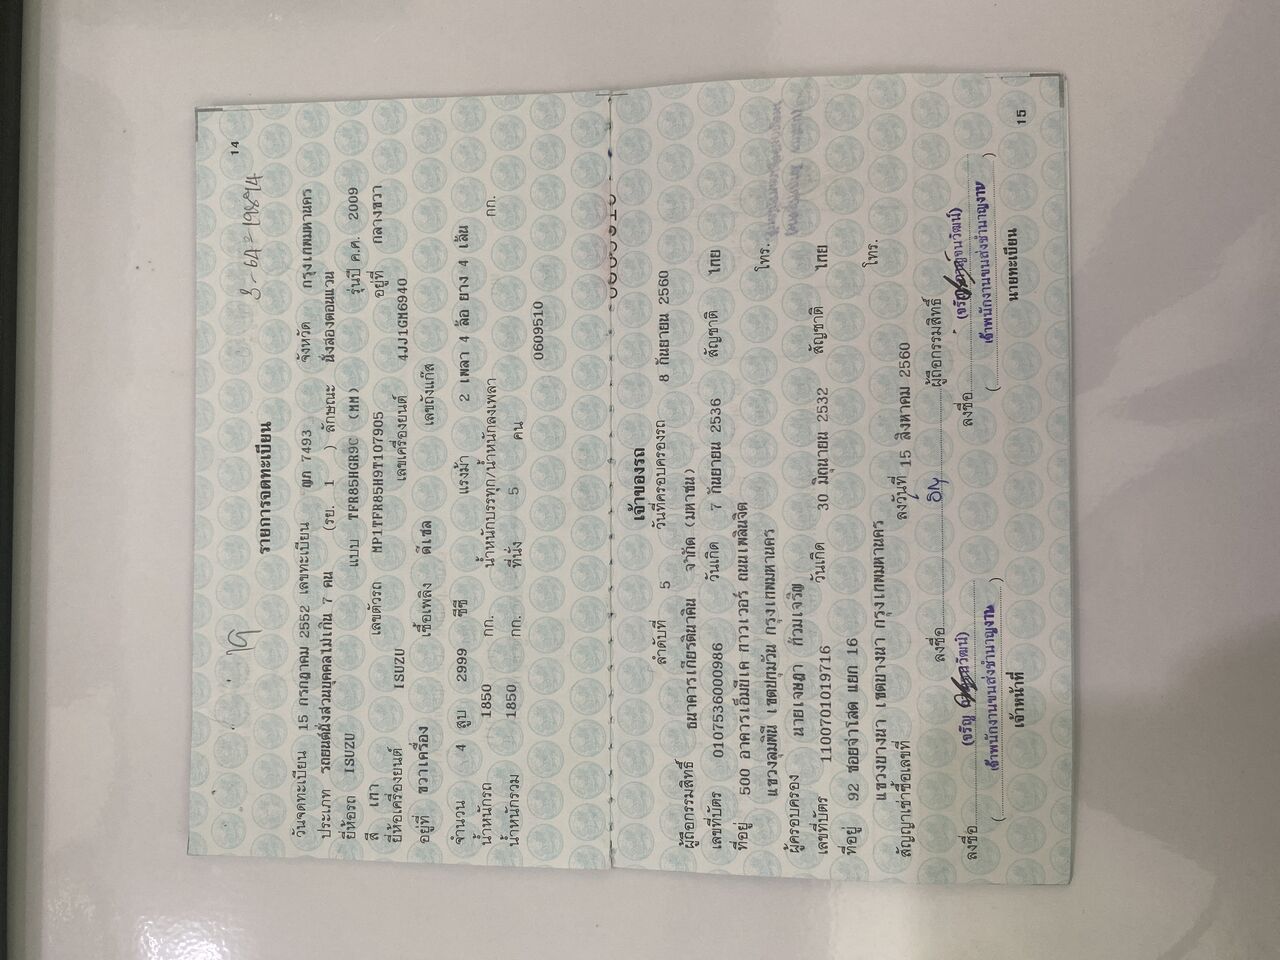 14
3-6A-19894
รายการจดทะเบียน
วันจดทะเบียน 15 กรกฎาคม 2552 เลขทะเบียน ฎภ 7493 จังหวัด กรุงเทพมหานคร
ประเภท รถยนต์นั่งส่วนบุคคลไม่เกิน 7 คน (รย. 1 ) ลักษณะ นั่งสองตอนแวน
ยี่ห้อรถ ISUZU แบบ TFR85HGR9C (MM) รุ่นปี ค.ศ. 2009
สี เทา เลขตัวรถ MP1TFR85H9T107905 อยู่ที่ กลางขวา
ยี่ห้อเครื่องยนต์ ISUZU เลขเครื่องยนต์ 4JJ1GM6940
อยู่ที่ ขวาเครื่อง เชื้อเพลิง ดีเซล เลขถังแก๊ส
จำนวน 4 สูบ 2999 ซีซี แรงม้า 2 เพลา 4 ล้อ ยาง 4 เส้น
น้ำหนักรถ 1850 กก. น้ำหนักบรรทุก/น้ำหนักลงเพลา กก.
น้ำหนักรวม 1850 กก. ที่นั่ง 5 คน
0609510
เจ้าของรถ
ลำดับที่ 5 วันที่ครอบครองรถ 8 กันยายน 2560
ผู้ถือกรรมสิทธิ์ ธนาคารเกียรตินาคิน จำกัด (มหาชน)
เลขที่บัตร 0107536000986 วันเกิด 7 กันยายน 2536 สัญชาติ ไทย
ที่อยู่ 500 อาคารเอ็มยีเค ทาวเวอร์ ถนนเพลินจิต
แขวงลุมพินี เขตปทุมวัน กรุงเทพมหานคร โทร.
ผู้ครอบครอง นายเจษฎา ท้วมเจริญ
เลขที่บัตร 1100701019716 วันเกิด 30 มิถุนายน 2532 สัญชาติ ไทย
ที่อยู่ 92 ซอยจ่าโสด แยก 16
แขวงบางนา เขตบางนา กรุงเทพมหานคร โทร.
สัญญาเช่าซื้อเลขที่ ลงวันที่ 15 สิงหาคม 2560
ลงชื่อ ผู้ถือกรรมสิทธิ์
ลงชื่อ ลงชื่อ
เจ้าพนักงานขนส่งชำนาญงาน เจ้าพนักงานขนส่งชำนาญงาน
เจ้าหน้าที่ นายทะเบียน
15